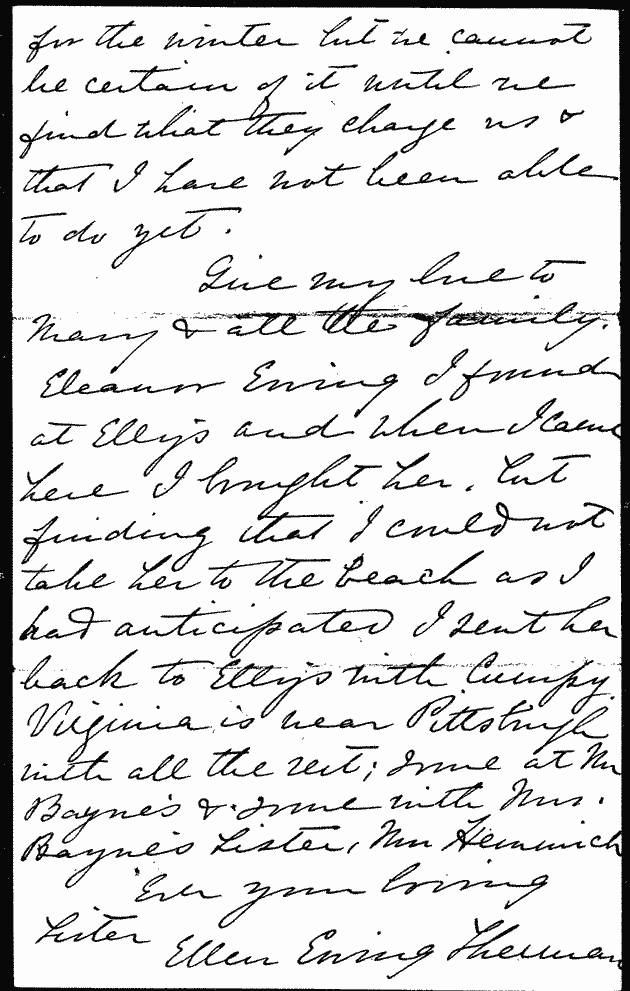 for the winter but we cannot
be certain of it until we
find what they charge us &
that I have not been able
to do yet.
Give my love to
Mary & all the family.
Eleanor Ewing I found
at Elly's and when I came
here I bought her, but
finding that I could not
take her to the beach as I
had anticipated I sent her
back to Elly's with Cumpy
Virginia is near Pittsburgh
with all the rest; some at Mr
Bayne's & some with Mrs.
Bayne's sister, Mrs
Ever your loving
sister
Ellen Ewing Sherman